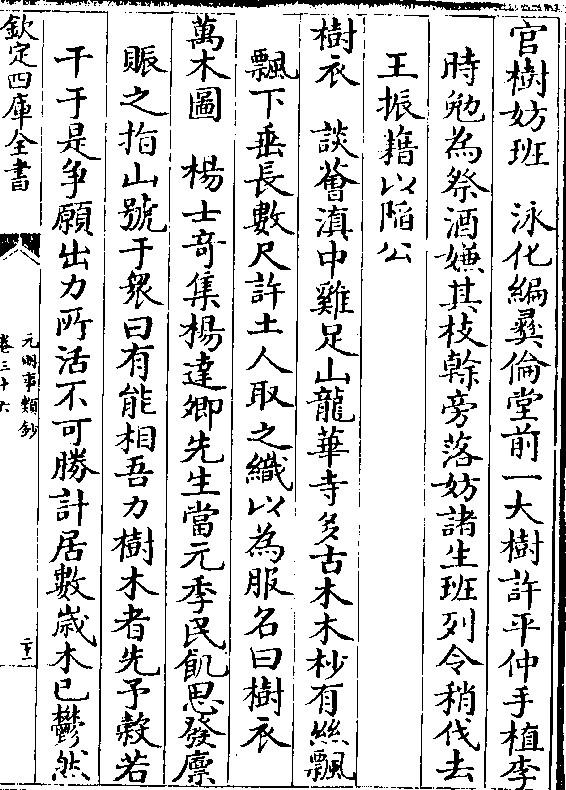 官樹妨班　泳化編彛倫堂前一大樹許平仲手植李
時勉為祭酒嫌其枝榦旁落妨諸生班列令稍伐去
王振藉以陥公
樹衣　談薈滇中雞足山龍華寺多古木木杪有絲飄
飄下垂長數尺許土人取之織以為服名曰樹衣
萬木圖　楊士竒集楊達卿先生當元季民飢思發廪
賑之指山號于衆曰有能相吾力樹木者先予榖若
干于是争願出力所活不可勝計居數歳木已鬱然
欽定四庫全書
元明事類鈔
卷三十六
二十一